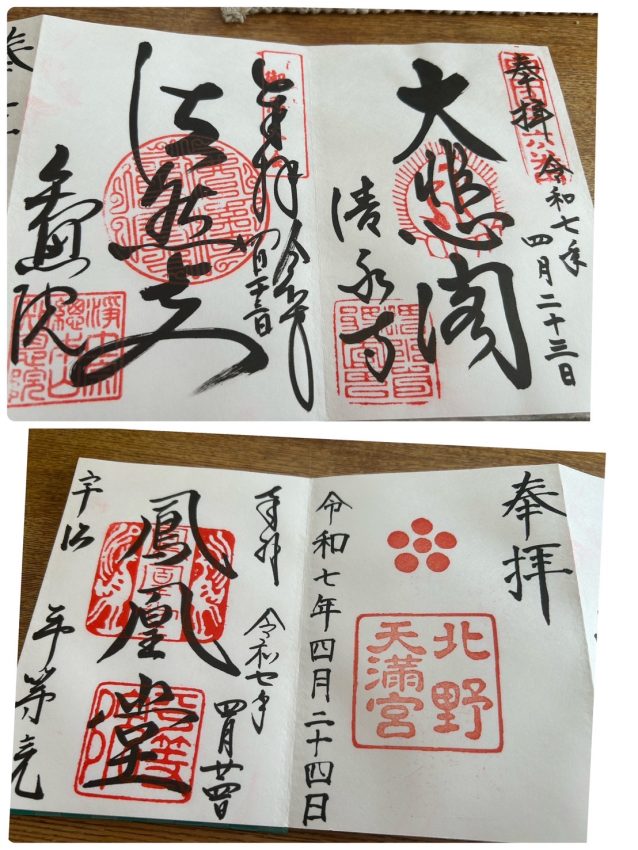 奉拝
令和七年
四月二十三日
大悲閣
清水寺
奉拝
令和七年
四月二十三日
法然上人
知恩院
浄土宗
総本山
知恩院
奉拝
北野
天満宮
令和七年四月二十四日
奉拝
令和七年
四月廿四日
鳳凰堂
宇治
平等院
平等
院